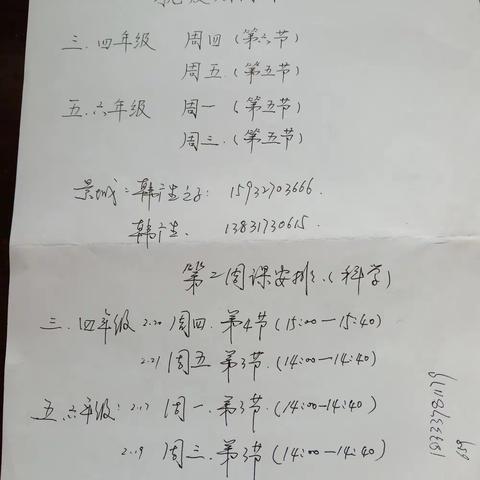 三.四年级 周四(第六节)
周五.(第五节)
五.六年级 周一.(第五节)
周三.(第五节)
景城:韩广生之子: 15932703666.
韩广生. 13831730615.
第二周课安排:(科学)
三.四年级 2.20 周四.第4节(15:00—15:40)
2.21 周五 第3节.(14:00—14:40)
五.六年级: 2.17 周一.第3节.(14:00—14:40)
2.19 周三.第3节(14:00—14:40)